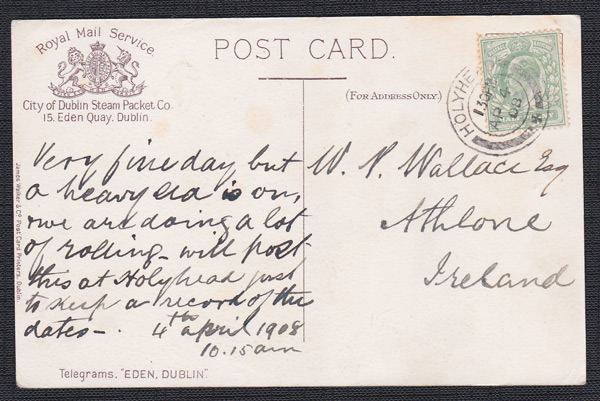 Royal Mail Service
City of Dublin Steam Packet Co.
15. Eden Quay. Dublin.
POST CARD.
(FOR ADDRESS ONLY.)
Very fine day but
a heavy sea is on,
we are doing a lot
of rolling - will post
this at Holyhead just
to keep a record of the
dates -. 4th april 1908
10.15am
W. P. Wallace Esq
Athlone
Ireland
HOLYHE
AP 4
08
James Walker & Co Post Card Printers. Dublin.
Telegrams. "EDEN, DUBLIN".